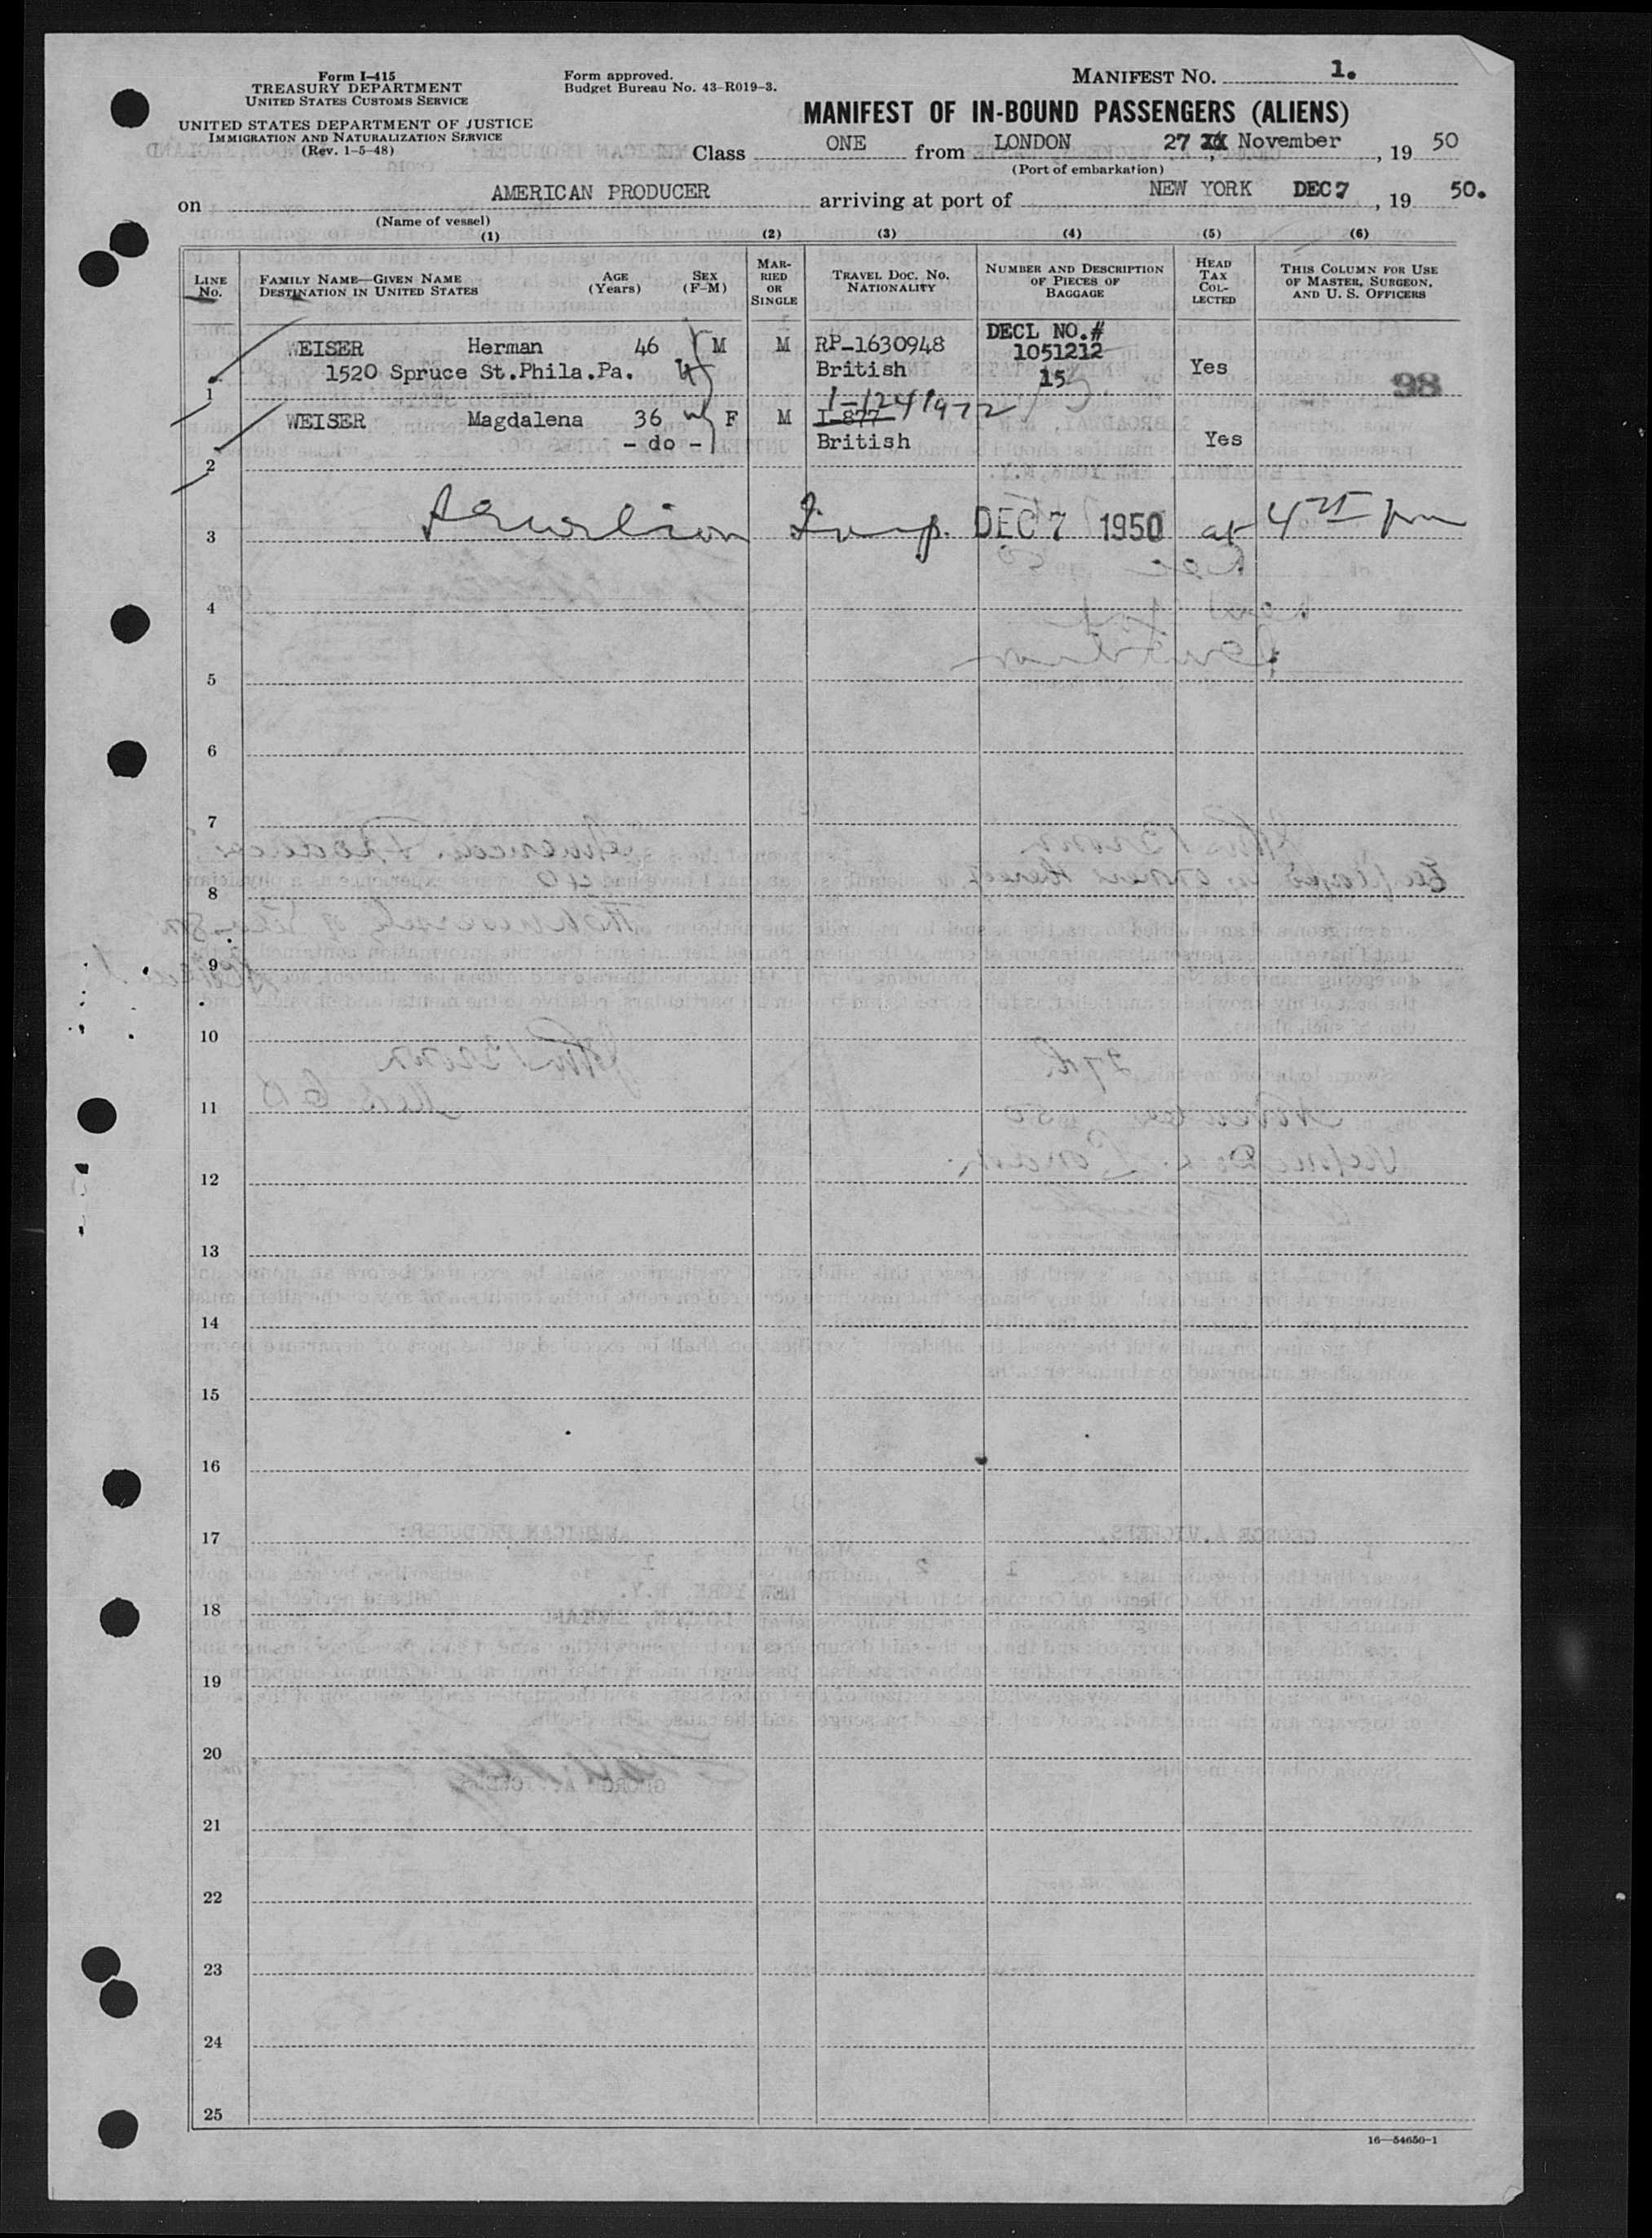 Form I-415
TREASURY DEPARTMENT
UNITED STATES CUSTOMS SERVICE
UNITED STATES DEPARTMENT OF JUSTICE
IMMIGRATION AND NATURALIZATION SERVICE
(Rev. 1-5-48)
Form approved.
Budget Bureau No. 43-R019-3.
MANIFEST NO. 1.
MANIFEST OF IN-BOUND PASSENGERS (ALIENS)
Class ONE from LONDON 27 November, 19 50
(Port of embarkation)
on AMERICAN PRODUCER arriving at port of NEW YORK DEC 7, 19 50.
(Name of vessel)
(1) (2) (3) (4) (5) (6)
LINE No. FAMILY NAME—GIVEN NAME DESTINATION IN UNITED STATES AGE (Years) SEX (F-M) MARRIED OR SINGLE TRAVEL DOC. NO. NATIONALITY NUMBER AND DESCRIPTION OF PIECES OF BAGGAGE HEAD TAX COLLECTED THIS COLUMN FOR USE OF MASTER, SURGEON, AND U. S. OFFICERS
DECL NO.#
WEISER Herman 46 M M RP-1630948 1051212
1520 Spruce St.Phila.Pa. British 15 Yes 98
1
I-1241972
WEISER Magdalena 36 F M I-877
- do - British Yes
2
3 DEC 7 1950 at 4 pm
4
5
6
7
8
9
10
11
12
13
14
15
16
17
18
19
20
21
22
23
24
25
16—54650-1